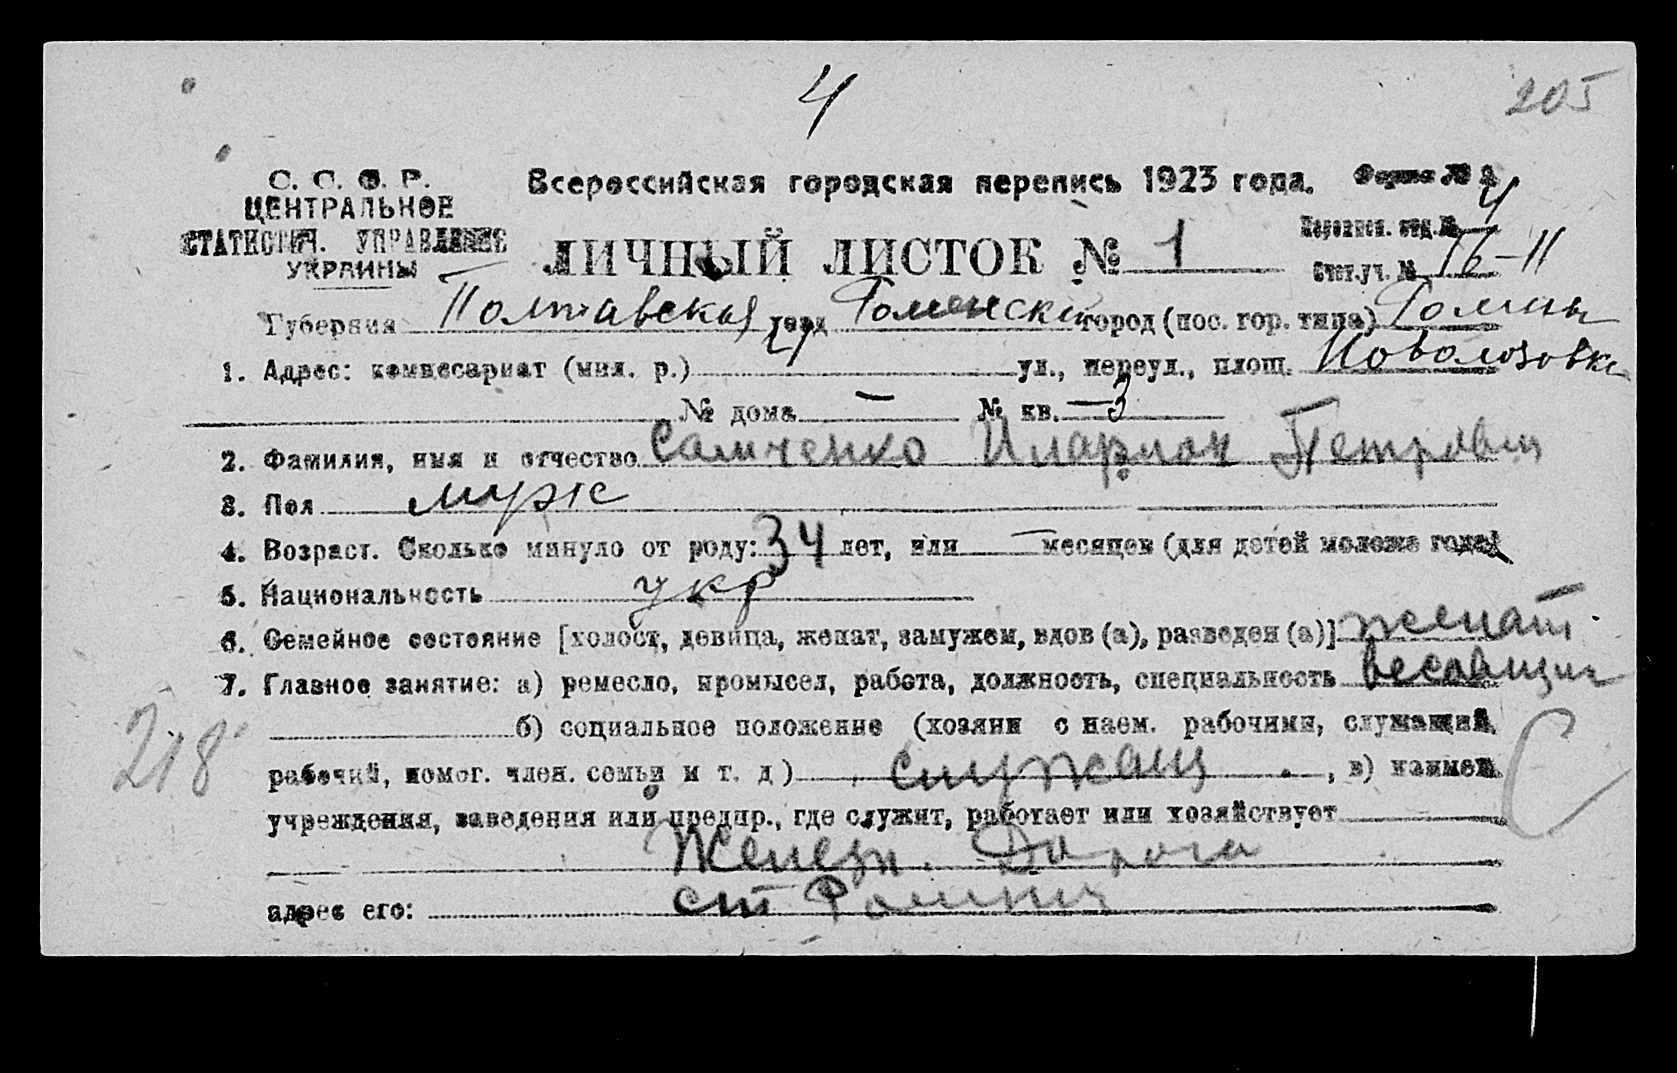 4
205
С. С. С. Р.
ЦЕНТРАЛЬНОЕ
СТАТИСТИЧ. УПРАВЛЕНИЕ
УКРАИНЫ
Всероссийская городская перепись 1923 года.
Форма № 2
ЛИЧНЫЙ ЛИСТОК № 1
Переписн. отд. № 4
Счет.уч. № 16-11
Губерния Полтавская уезд Роменский город (пос. гор. типа) Ромны
1. Адрес: комиссариат (мил. р.) ул., переул., площ.
№ дома — № кв. — 3
2. Фамилия, имя и отчество Самченко Иларион Петрович
3. Пол муж
4. Возраст. Сколько минуло от роду: 34 лет, или — месяцев (для детей моложе года)
5. Национальность укр
6. Семейное состояние [холост, девица, женат, замужем, вдов (а), разведен (а)] женат.
7. Главное занятие: а) ремесло, промысел, работа, должность, специальность весовщик
б) социальное положение (хозяин с наем. рабочими, служащий,
рабочий, помог. член. семьи и т. д) служащ , в) наимен.
учреждения, заведения или предпр., где служит, работает или хозяйствует
Железн. Дорога
адрес его: ст Ромны
218
С